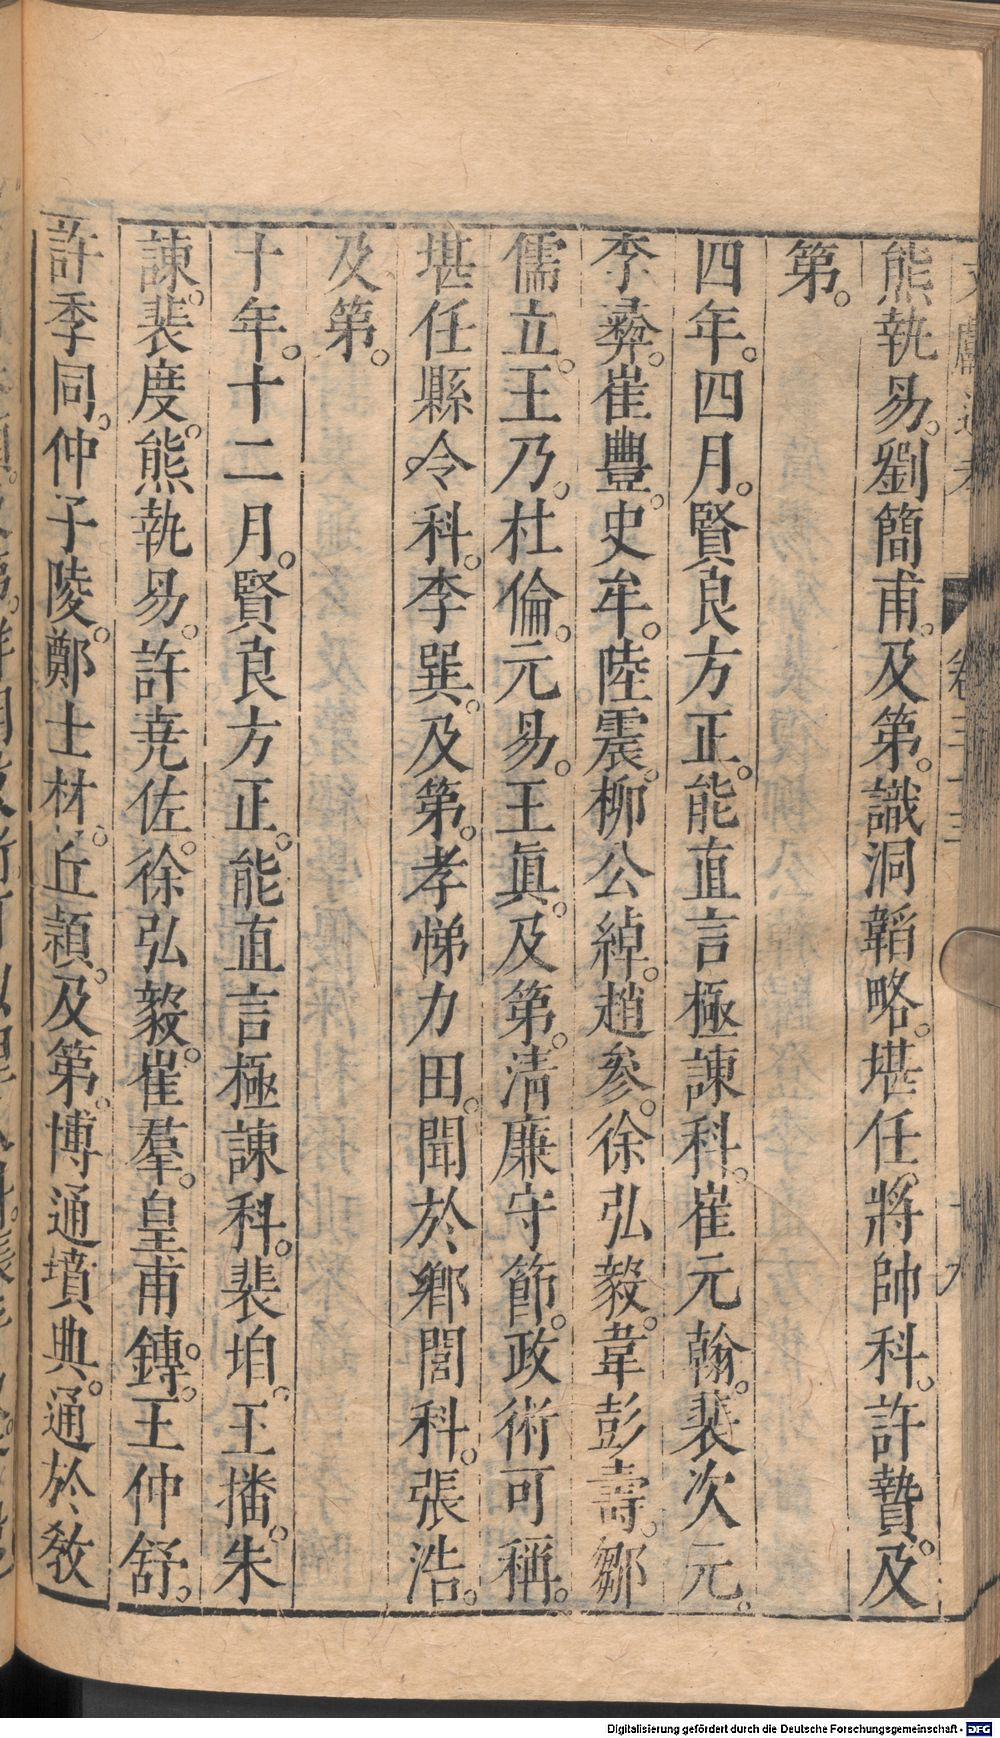 熊執易。劉簡甫。及第。識洞韜略。堪任將帥科。許贄。及
第。
四年。四月。賢良方正。能直言極諫科。崔元翰。裴次元。
李彝。崔豐。史牟。陸震。柳公綽。趙參。徐弘毅。韋彭壽。鄒
儒立。王乃。杜倫。元易。王真。及第。清廉守節。政術可稱。
堪任縣令科。李巽。及第。孝悌力田。聞於鄉閭科。張浩。
及第。
十年。十二月。賢良方正。能直言極諫科。裴垍。王播。朱
諫。裴度。熊執易。許堯佐。徐弘毅。崔羣。皇甫鏄。王仲舒。
許季同。仲子陵。鄭士林。丘頴。及第。博通墳典。通於敎
Digitalisierung gefördert durch die Deutsche Forschungsgemeinschaft - DFG